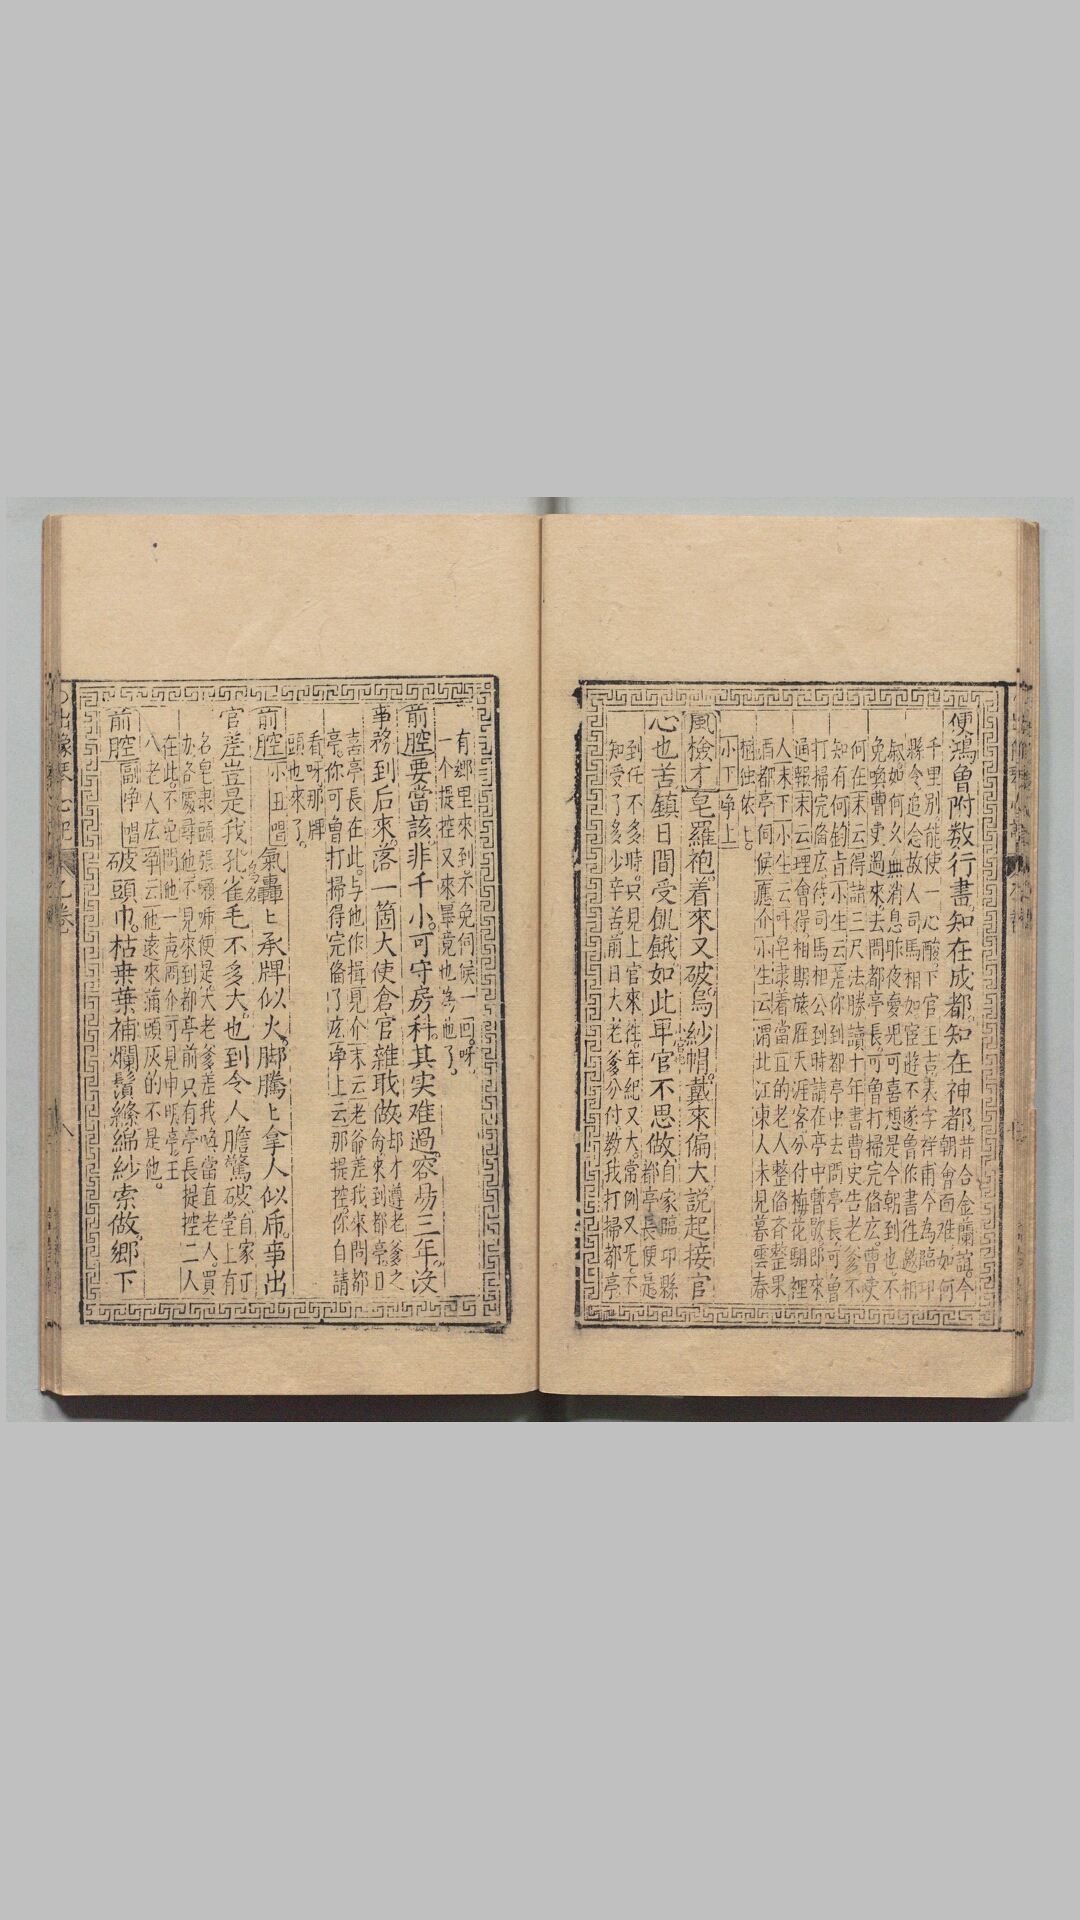 便鴻魯附数行書知在成都知在神都昔合金蘭誼今
朝會面难如何
千里别能使一心酸下官王吉表字祥甫今為臨卭
縣令追念故人司馬相如宦遊不遂魯作書徃邀相
叙如何久無消息昨夜灯兒可喜想是今朝到也不
免喚曹吏過來去問都亭長可魯打掃完俻広曹吏
何在末云得諸三尺法勝讀十年書曹史告老爹不
知有何鈞旨小生云差你到都亭中去問亭長可魯
打掃完俻広待司馬相公到時請在亭中暫歇即來
通報末云理會得相期旅雁天涯客分付梅花馹裡
人末下小生云叫皂隶着當直的老人整俻斉整果
酒都亭伺候應介小生云謂北江東人未見暮雲春
樹独依上
小丁净上
風檢才皂羅袍着來又破烏紗帽戴來偏大説起接官
心也苦鎮日間受飢餓如此軍官不思做自家臨卭縣
都亭長便是
到任不多時只見上官來往年紀又大常例又旡不
知受了多少辛苦前日大老爹分付教我打掃都亭
有鄉里來到不免伺候一回呀
一个提控又來畢竟也為他了
前腔要當該非千小可守房科其实难過容易三年沒
事務到后來落一箇大使倉官雜耿做却才遵老爹之
喜亭長在此与他作揖見介末云老爺差我來問都
亭你可曾打掃得完俻了広净上云那提控你自請
看呀那牌
頭也來了
前腔小丑唱氣轟上承牌似火脚騰上拿人似㡳事出
官差豈是我孔雀毛不多大也到令人膽驚破自家可
名皂隶頭張嚇㖟便是大老爹差我喚當直老人買
办各處尋他不見來到都亭前只有亭長提控二人
在此不免問他一声兩介可見申明亭王
八老人広净云他遠來蒲頭灰的不是他
前腔副净唱破頭巾枯棗葉補爛鬚絛綿紗索做鄉下
出像琴心記 乙卷 八